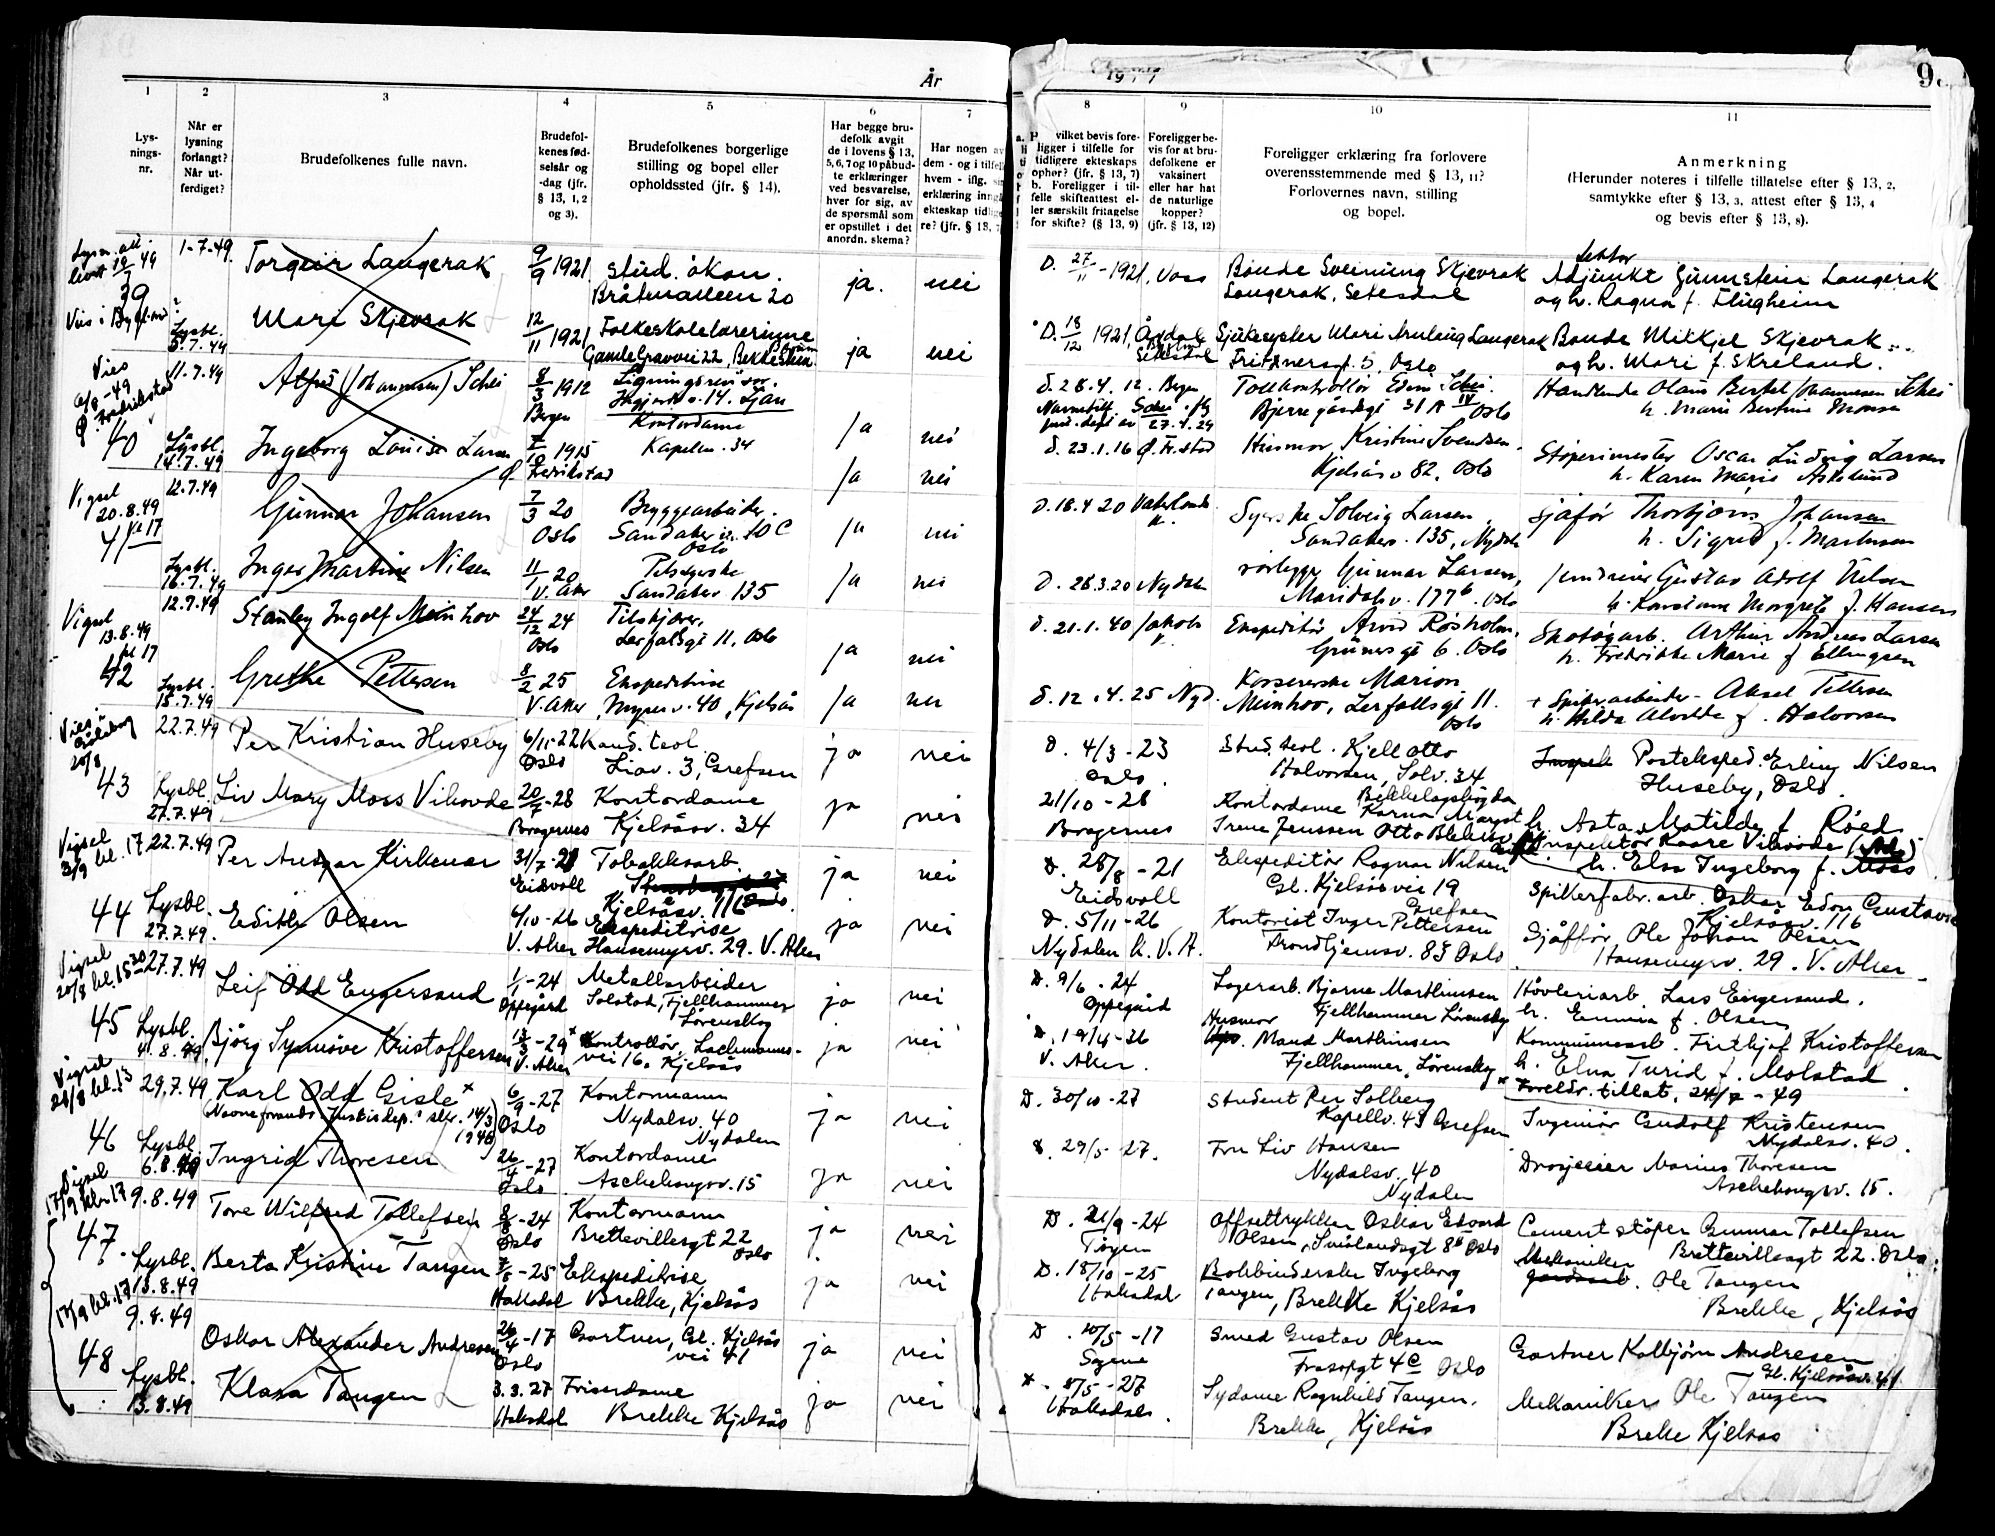 År
1
2
3
4
5
6
7
Lys-
nings-
nr.
Når er
lysning
forlangt?
Når ut-
ferdiget?
Brudefolkenes fulle navn.
Brudefol-
kenes fød-
selsår og
-dag (jfr.
§ 13, 1, 2
og 3).
Brudefolkenes borgerlige
stilling og bopel eller
opholdssted (jfr. § 14).
Har begge bru-
defolk avgit
de i lovens § 13,
5, 6, 7 og 10 påbud-
te erklæringer
ved besvarelse,
hver for sig, av
de spørsmål som
er opstillet i det
anordn. skema?
Har nogen av
dem - og i tilfelle
hvem - iflg.
erklæring inngå
ekteskap tidlige
re? (jfr. § 13,
39
1-7-49.
Torgeir Laugerak
9/9 1921
stud. økon.
Bråtenalleen 20
ja.
nei
Lysbl.
5.7.49
Mari Skjevrak
12/11 1921
Folkeskolelærerinne
Gamle Gravvei 22, Bekkestua
ja
nei
Vies
6/8-49
Ø. Fredrikstad
40
11.7.49
Alfred (Johannessen) Schei
8/3 1912
Bergen
Ligningsrevisor
14. Ljan
ja
nei
Lysbl.
14.7.49
Ingeborg Louise Larsen
1915
Ø. Fredrikstad
Kontordame
Kapellv. 34
ja
nei
Vigsel
20.8.49
kl 17
41
12.7.49
Gunnar Johansen
7/3 20
Oslo
Bryggearbeider.
Sandakerv. 10 C
Oslo
ja
nei
Lysbl.
16.7.49
Inger Martine Nilsen
11/1 20
V. Aker
Sandakerv 135
ja
nei
Vigsel
13.8.49
kl 17
42
12.7.49
Stanley Ingolf Meinhov
24/12 24
Oslo
Lerfallsgt 11, Oslo
ja
nei
Lysbl.
15.7.49
Grethe Pettersen
8/2 25
V. Aker
Ekspeditrise
Myrerv. 40, Kjelsås
ja
nei
Vies
20/8
43
22.7.49
Per Kristian Huseby
6/11-22
Oslo
Kand. teol.
Liav. 3, Grefsen
ja
nei
Lysbl.
27.7.49
Liv Mary Moss Vihovde
20/7-28
Bragernes
Kontordame
Kjelsåsv. 34
ja
nei
Vigsel
3/9 kl. 17
44
22.7.49
Per Ansgar Kirkenær
31/7-21
Eidsvoll
Tobakksarb.
Kjelsåsv. 116
ja
nei
Lysbl.
27.7.49.
Edith Olsen
6/10-26
V. Aker
Ekspeditrise
Hansemyrv. 29. V. Aker
ja
nei
Vigsel
20/8 kl. 15 30
45
27.7.49
Leif Odd Engersand
1/1-24
Oppegård
Metallarbeider
Solstad, Fjellhammer
Lørenskog
ja
nei
Lysbl.
4.8.49
Bjørg Synnøve Kristoffersen
13/3-29
V. Aker
Kontrollør, Lachmanns-
vei 16, Kjelsås
ja
nei
Vigsel
20/8 kl. 13
46
29.7.49
Karl Odd Gisle
6/9-27
Oslo
Kontormann
Nydalsv. 40
Nydalen
ja
nei
Lysbl.
6.8.49
Ingrid Thoresen
26/4-27
Oslo
Kontordame
Aschehougsv. 15
ja
nei
Vigsel
17/9 kl. 17
47
9.8.49
Tore Wilfred Tollefsen
8/8-24
Oslo
Kontormann
Brettevillesgt 22
Oslo
ja
nei
Lysbl.
13.8.49
Berta Kristine Tangen
-25
Hakadal
Ekspeditrise
Brekke, Kjelsås
ja
nei
17/9 kl. 17
48
9.8.49
Oskar Alexander Andresen
26/4-17
Oslo
Gartner, Gl. Kjelsås
vei 41
ja
nei
Lysbl.
13.8.49
Klara Tangen
3.3.27
Hakadal
Friserdame
Brekke Kjelsås
ja
nei
8
9
10
11
vilket bevis fore-
ligger i tilfelle for
tidligere ekteskaps
ophør? (jfr. § 13, 7)
b. Foreligger i til-
felle skifteattest el-
ler særskilt fritagelse
for skifte? (§ 13, 9)
Foreligger be-
vis for at bru-
defolkene er
vaksinert
eller har hat
de naturlige
kopper?
(jfr. § 13, 12)
Foreligger erklæring fra forlovere
overensstemmende med § 13, 11?
Forlovernes navn, stilling
og bopel.
Anmerkning
(Herunder noteres i tilfelle tillatelse efter § 13, 2,
samtykke efter § 13, 3, attest efter § 13, 4
og bevis efter § 13, 8).
D. 27/11-1921, Voss
Bonde Sveinung Skjevrak
Laugerak, Setesdal
Lektor
Adjunkt Gunnstein Laugerak
og h. Ragna f. Flugheim
D. 18/12 1921,
Setesdal
Sjukesyster Mari Laugerak
Fritznersgt. 5, Oslo
Bonde Mikkjel Skjevrak
og h. Mari f. Skreland.
D. 28.4.12. Bergen
27.4.29
Tollkontrollør Edvin Schei
Bjerregårdsgt 31 Oslo
Handlende Olaus Bertel Johannessen Schei
h. Marie Bertine Monsen
D. 23.1.16 Ø. Fr.stad
Husmor Kristine Svendsen
Kjelsåsv 82, Oslo
Støperimester Oscar Ludvig Larsen
h. Karen Marie Asklund
D. 18.4.20 Vaterlands
k.
Solveig Larsen
Sandakerv. 135, Nydalen
Sjåfør Thorbjørn Johansen
h. Sigrid f. Martinsen
D. 28.3.20 Nydalen
rørlegger Gunnar Larsen,
Maridalsv. 177 b. Oslo
Gustav Adolf Nilsen
h. Konstanse Margrete f. Hansen
D. 21.1.40 Jakob
Ekspeditør Arvid Røsholm,
Grünersgt 6. Oslo
Arthur Andreas Larsen
h. Fredrikke Marie f Ellingsen
D. 12.4.25 Nyd.
Marion
Meinhov, Lerfallsgt 11.
Oslo
Aksel Pettersen
h. Hilda Alvilde f. Halvorsen
D. 4/3-23
Oslo
Stud. teol. Kjell Otto
Halvorsen, Solv. 34
Posteksped. Erling Nilsen
Huseby, Oslo.
21/10-28
Bragernes
Kontordame Karna Margot
Irene Jenssen
h. Asta Matilde f. Røed
Inspektør Kaare Vihovde
h. Elsa Ingeborg f. Moss
D. 28/8-21
Eidsvoll
Ekspeditør Ragnar Nilsen
Gl. Kjelsåsvei 19
Grefsen
Spikerfabr.arb. Oskar Edon Gustavsen
Kjelsåsv. 116
D. 5/11-26
Nydalen k. V. A.
Kontorist Inger Pettersen
Trondhjemsv. 83 Oslo
Sjåffør Ole Johan Olsen
Hansemyrv. 29. V. Aker
D. 9/6-24
Oppegård
Lagerarb. Bjarne Marthinsen
Fjellhammer Lørenskog
Høvleriarb. Lars Engersand.
h. Emma f. Olsen
D. 19/4-26
V. Aker.
Husmor
Maud Marthinsen
Fjellhammer, Lørenskog
Kommunearb. Fritjof Kristoffersen
h. Elna Turid f. Molstad
Foreldr. tillat. 24/7-49
D. 30/10-27
Student Per Solberg
Kapellv. 43 Grefsen
Ingeniør Gudolf Kristensen
Nydalsv. 40.
D. 29/5-27.
Fru Liv Hansen
Nydalsv. 40
Nydalen
Drosjeeier Marius Thoresen
Aschehougsv. 15.
D. 21/9-24
Tøyen
Offsettrykker Oskar Edvard
Olsen, Smålandsgt 8 b Oslo
Cementstøper Gunnar Tollefsen
Brettevillesgt 22. Oslo
D. 18/10-25
Hakadal
Bokbinderske Ingeborg
Tangen, Brekke Kjelsås
Mekaniker
Ole Tangen
Brekke, Kjelsås
D. 10/5-17
Sagene
Smed Gustav Olsen
Frasopgt 4 C Oslo
Gartner Kolbjørn Andresen
Gl. Kjelsåsv. 41.
8/5-27
Hakadal.
Sydame Ragnhild Tangen.
Brekke, Kjelsås
Mekaniker Ole Tangen
Brekke Kjelsås